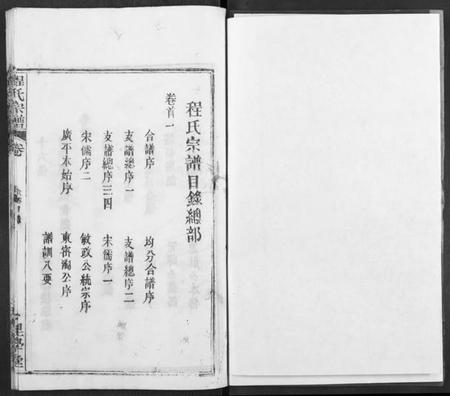 程氏宗譜目錄總部
卷首一
合譜序
均分合譜序
支譜總序一
支譜總序二
支譜總序三四
宋儒序一
宋儒序二
敏政公統宗序
廣平本始序
東密淘公序
譜訓八要
程氏宗譜
卷
理學堂